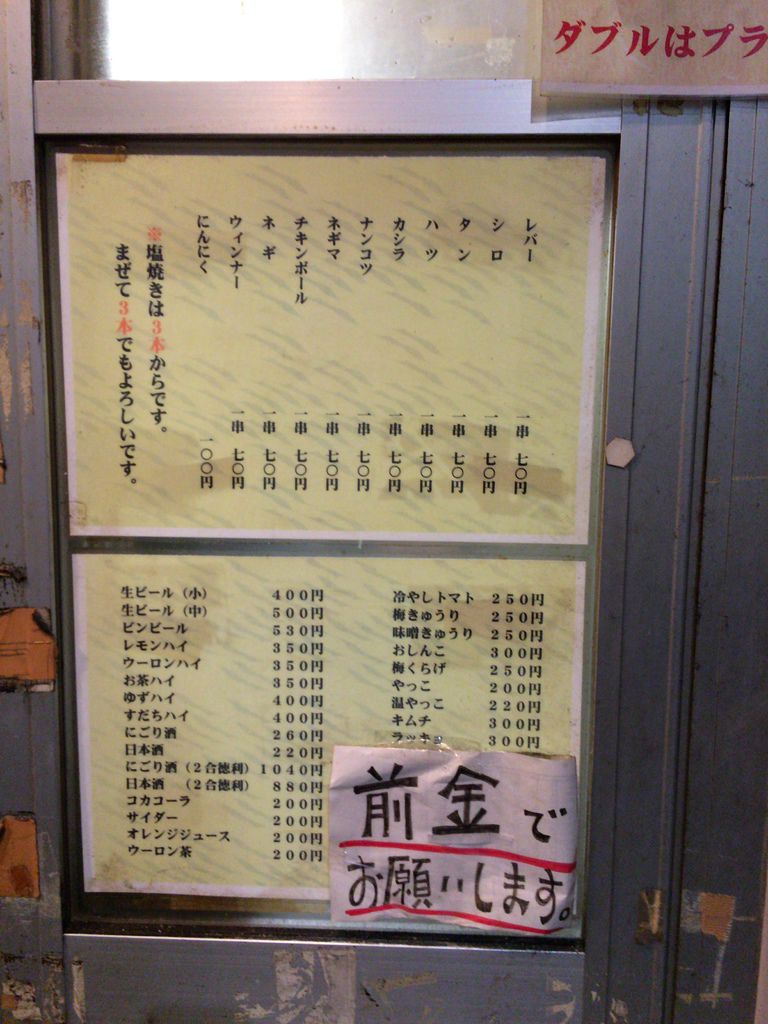 ダブルはプラ
レバー 一串 七〇円
シロ 一串 七〇円
タン 一串 七〇円
ハツ 一串 七〇円
カシラ 一串 七〇円
ナンコツ 一串 七〇円
ネギマ 一串 七〇円
チキンボール 一串 七〇円
ネギ 一串 七〇円
ウィンナー 一串 七〇円
にんにく 一〇〇円
※塩焼きは3本からです。
まぜて3本でもよろしいです。
生ビール（小） 400円
生ビール（中） 500円
ビンビール 530円
レモンハイ 350円
ウーロンハイ 350円
お茶ハイ 350円
ゆずハイ 400円
すだちハイ 400円
にごり酒 260円
日本酒 220円
にごり酒（2合徳利） 1040円
日本酒 （2合徳利） 880円
コカコーラ 200円
サイダー 200円
オレンジジュース 200円
ウーロン茶 200円
冷やしトマト 250円
梅きゅうり 250円
味噌きゅうり 250円
おしんこ 300円
梅くらげ 250円
やっこ 200円
温やっこ 220円
キムチ 300円
ラッキョ 300円
前金で
お願いします。